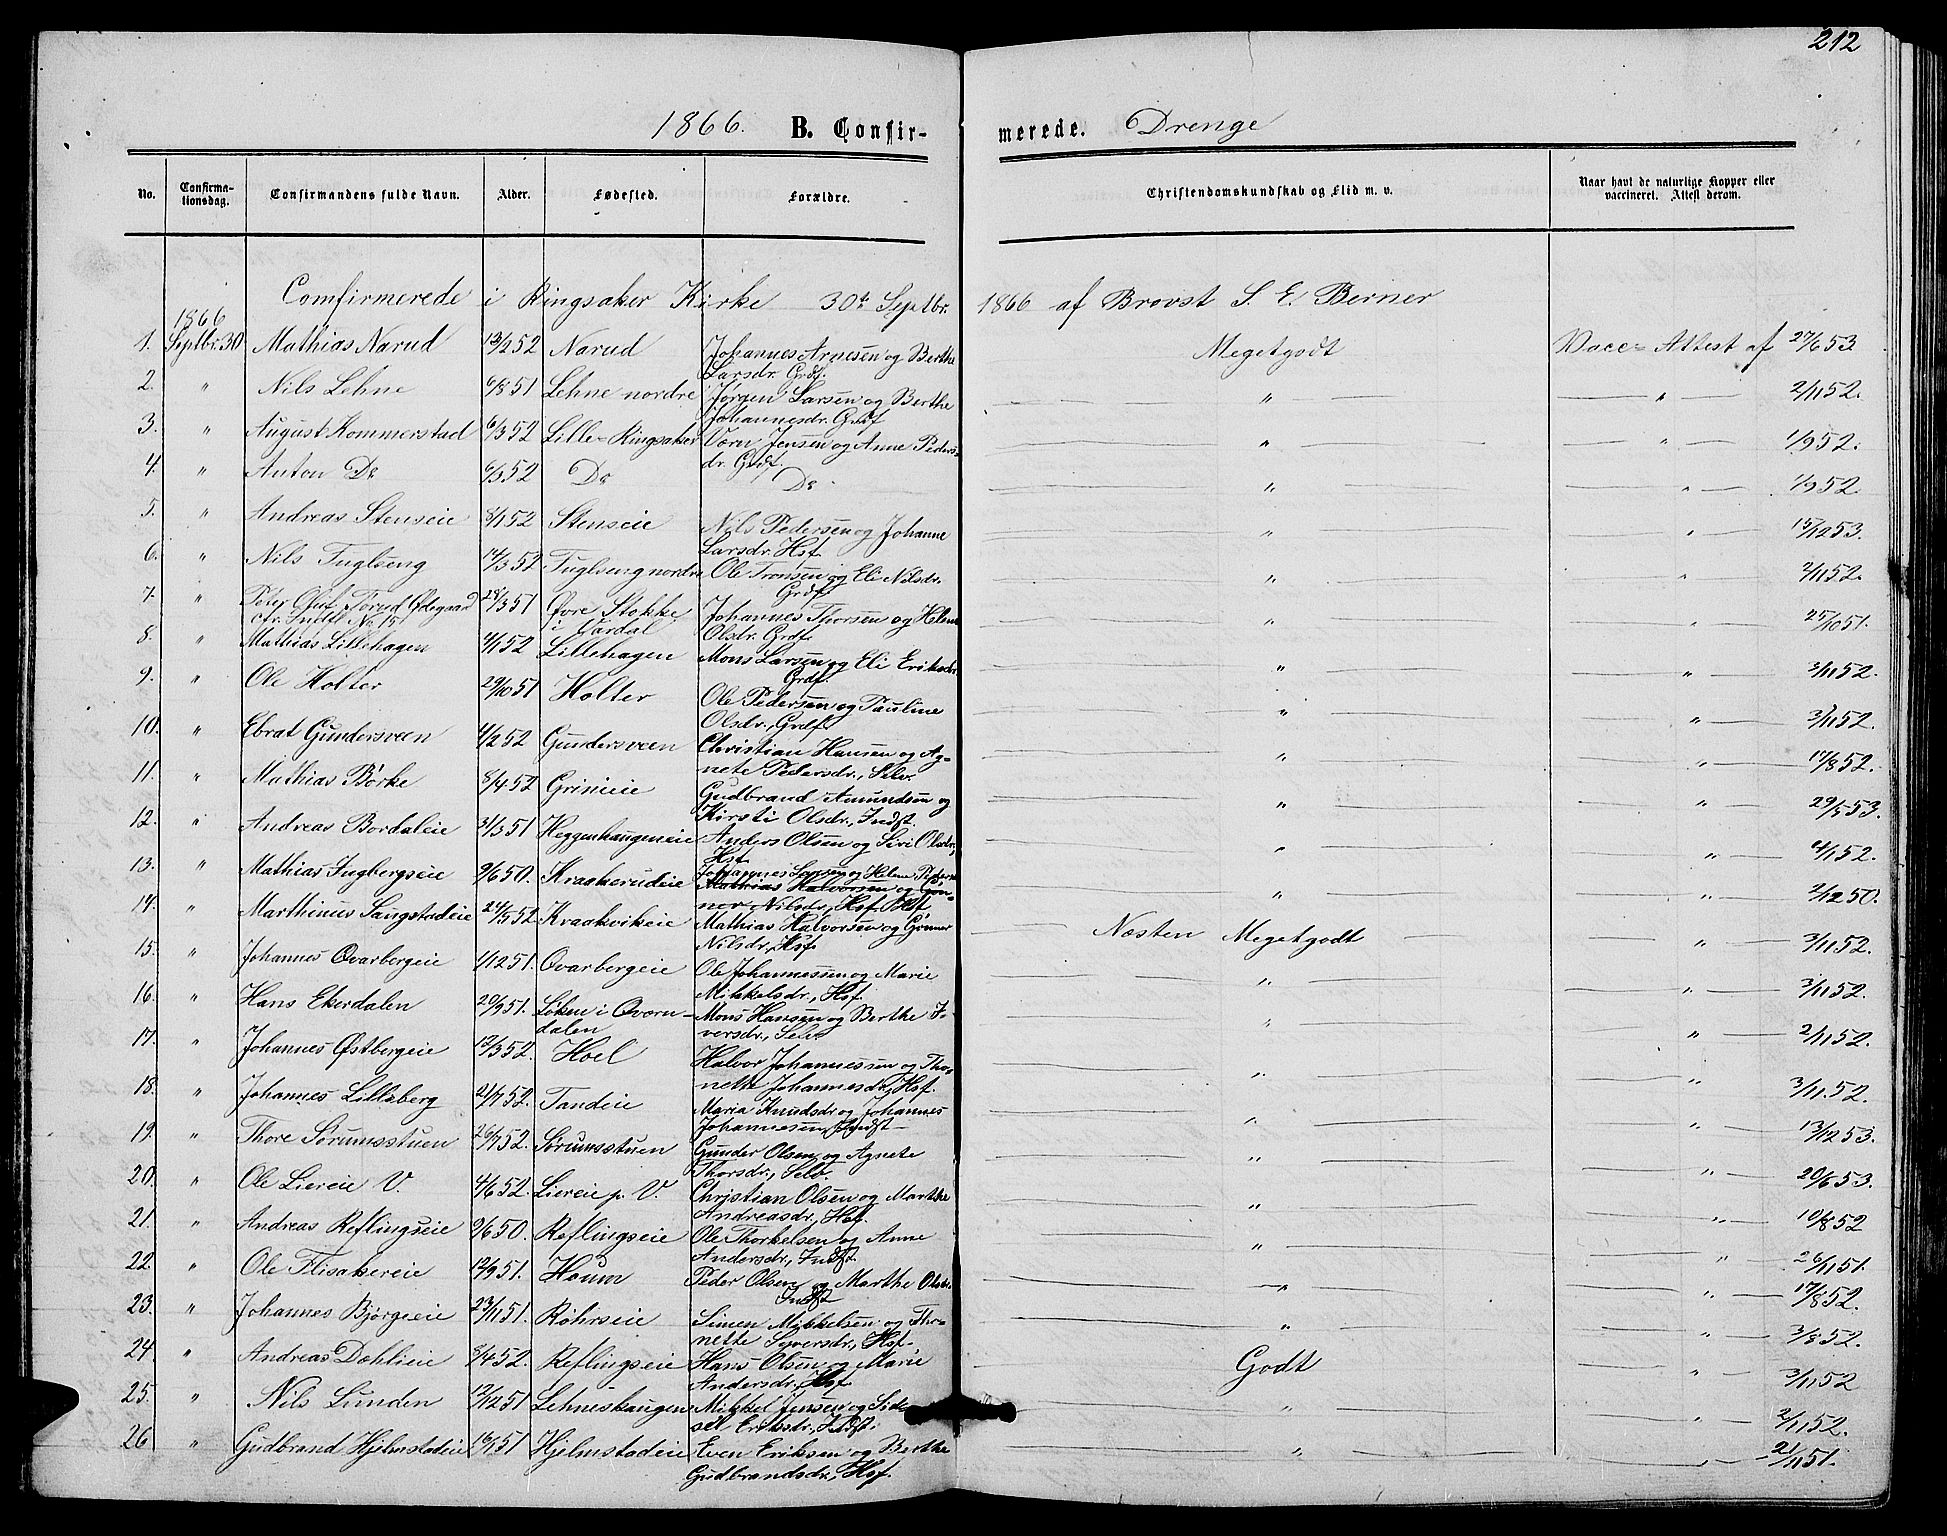 212
1866. B. Confir- merede. Drenge
No. Confirma- tionsdag. Confirmandens fulde Navn. Alder. Fødested. Forældre. Christendomskundskab og Flid m. v. Naar havt de naturlige Kopper eller vaccineret. Attest derom.
Comfirmerede i Ringsaker Kirke 30te Septbr. 1866 af Provst S. E. Berner
1866
1. Septbr. 30 Mathias Narud 13/2 52 Narud Johannes Arnesen og Berthe Megetgodt Vacc= Attest af 27/6 53
Larsdr. Grdf.
2. " Nils Lehne 6/8 51 Lehne nordre Jørgen Larsen og Berthe " " 2/11 52.
Johannesdr. Grdf
3. " August Kommerstad 6/3 52 Lille=Ringsaker Vorn Jensen og Anne Peders= " " 1/9 52.
dr. Grdf.
4. " Anton Do 6/3 52 Do Do " " 1/9 52.
5. " Andreas Stenseie 8/1 52 Stenseie Nils Pedersen og Johanne " " 15/12 53.
Larsdr. Hsf.
6. " Nils Fuglseng 14/3 52 Fuglseng nordre Ole Tronsen og Eli Nilsdr. " " 2/11 52.
Grdf
7. " Peter Oluf Torud Ødegaard 28/3 51 Øvre Stokke Johannes Thorsen og Helene " " 25/10 51.
cfr. Indst No 15 i Vardal Olsdr. Grdf.
8. " Mathias Lillehagen 4/1 52 Lillehagen Mons Larsen og Eli Eriksdr. " " 3/11 52.
Grdf.
9. " Ole Holter 29/10 51 Holter Ole Pedersen og Pauline " " 3/11 52.
Olsdr., Grdf.
10. " Ebrat Gundersveen 4/2 52 Gundersveen Christian Hansen og Ag= " " 17/8 52.
nete Pedersdr., Selv.
11. " Mathias Børke 8/4 52 Grinieie Gudbrand Amundsen og " " 29/5 53.
Kirsti Olsdr., Indst.
12. " Andreas Bordaleie 31/3 51 Heggenhaugeneie Anders Olsen og Siri Olsdr., " " 4/1 52.
Hsf
13. " Mathias Ingbergseie 9/6 50. Kraakerudeie Johannes Larsen og Helene Peders " " 2/12 50.
Mathias Halvorsen og Gøn=
nor Nilsdr., Hsf. Hsf
14. " Marthinus Saugstadeie 24/5 52 Kraakvikeie Mathias Halvorsen og Gønner Næsten Megetgodt " 3/11 52.
Nilsdr., Hsf.
15. " Johannes Ovarbergeie 1/12 51. Ovarbergeie Ole Johannessen og Marie " " 3/11 52.
Mikkelsdr., Hsf.
16. " Hans Ekerdalen 20/9 51. Løken i Overn= Mons Hansen og Berthe I= " " 2/11 52.
dalen versdr., Selv
17. " Johannes Østbergeie 13/3 52. Hoel Halvor Johannessen og Tho= " " 3/11.52.
nette Johannesdr., Hsf.
18. " Johannes Lillaberg 24/7 52. Tandeie Maria Knudsdr og Johannes " " 13/12 53.
Johannesen, Indst
19. " Thore Sørumsstuen 26/7 52. Sørumsstuen Gunder Olsen og Agnete " " 20/6 53.
Thorsdr., Selv.
20. " Ole Liereie V. 4/6 52. Liereie p. V. Christian Olsen og Marthe " " 10/8 52
Andreasdr., Hsf.
21. " Andreas Reflingseie 9/6 50. Reflingseie Ole Thorkelsen og Anne " " 26/11 51.
Andersdr., Indst.
22. " Ole Flisakereie 12/9 51. Houm Peder Olsen og Marthe Olsdr. " " 17/8 52.
Indst
23. " Johannes Bjørgeeie 23/11 51. Røhrseie Simen Mikkelsen og Tho= " " 3/8 52.
nette Syversdr., Hsf.
24. " Andreas Dæhlieie 8/4 52. Reflingseie Hans Olsen og Marie Godt " 3/11 52
Andersdr., Hsf.
25. " Nils Lunden 12/12 51 Lehneshaugen Mikkel Jensen og Side= " " 2/11 52.
sel Eriksdr., Indst.
26 " Gudbrand Hjelmstadeie 16/1 51 Hjelmstadeie Even Eriksen og Berthe " " 21/11 51.
Gudbrandsdr., Hsf.